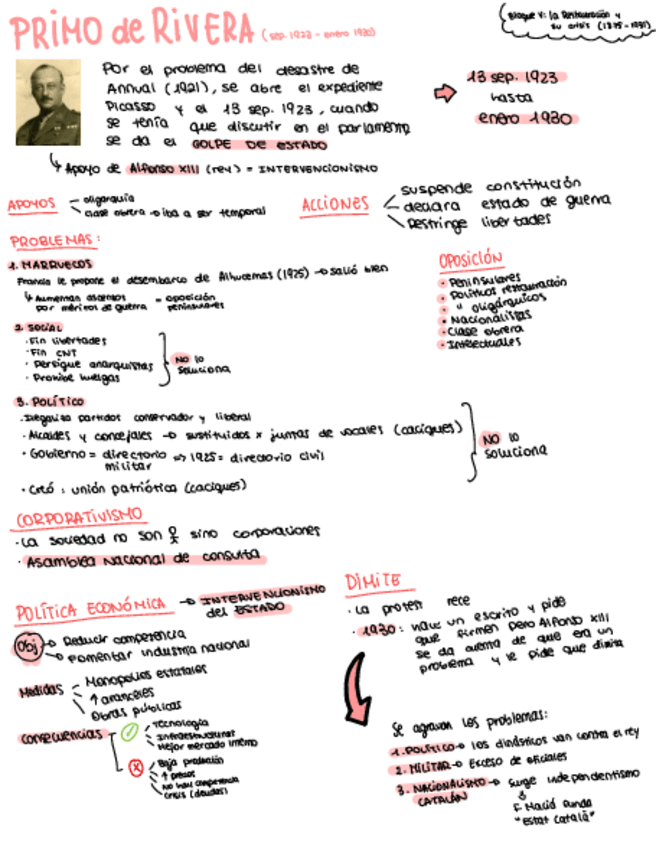 PRIMO de RIVERA (sep. 1923 - enero 1930)
Bloque V: la Restauración y
su crisis (1875-1931)
Por el problema del desastre de
Annual (1921), se abre el expediente
Picasso y el 13 sep. 1923, cuando
se tenía que discutir en el parlamento
se da el GOLPE DE ESTADO
13 sep. 1923
hasta
enero 1930
Apoyo de Alfonso XIII (rey) = INTERVENCIONISMO
APOYOS
oligarquía
clase obrera → iba a ser temporal
ACCIONES
suspende constitución
declara estado de guerra
Restringe libertades
PROBLEMAS:
1. MARRUECOS
Francia le propone el desembarco de Alhucemas (1925) → salió bien
Aumentan ascensos = oposición
por méritos de guerra peninsulares
OPOSICIÓN
• Peninsulares
• Políticos restauración
• " oligárquicos
• Nacionalistas
• Clase obrera
• Intelectuales
2. SOCIAL
• Fin libertades
• Fin CNT
• Persigue anarquistas
• Prohíbe huelgas
NO lo
soluciona
3. POLÍTICO
• Ilegaliza partidos conservador y liberal
• Alcaldes y concejales → sustituidos x juntas de vocales (caciques)
• Gobierno = directorio => 1925 = directorio civil
militar
• Creó: unión patriótica (caciques)
NO lo
soluciona
CORPORATIVISMO
• La sociedad no son sino corporaciones
• Asamblea Nacional de consulta
POLÍTICA ECONÓMICA → INTERVENCIONISMO
del ESTADO
Obj → Reducir competencia
→ Fomentar industria nacional
Medidas
Monopolios estatales
↑ aranceles
Obras públicas
Consecuencias
Tecnología
Infraestructuras
Mejor mercado interno
Baja producción
↑ precios
No hay competencia
Crisis (deudas)
DIMITE
• La protest rece
• 1930: hace un escrito y pide
que firmen pero Alfonso XIII
se da cuenta de que era un
problema y le pide que dimita
Se agravan los problemas:
1. POLÍTICO → los dinásticos van contra el rey
2. MILITAR → Exceso de oficiales
3. NACIONALISMO → Surge independentismo
CATALÁN
F. Macià funda
"Estat Català"